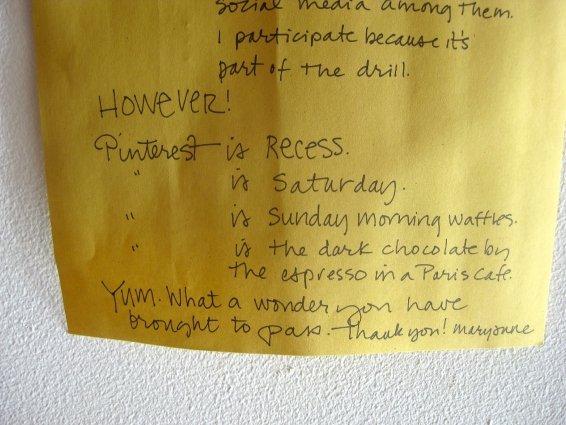 social media among them.
I participate because it's
part of the drill.
HOWEVER!
Pinterest is RECESS.
" is Saturday.
" is Sunday morning waffles.
" is the dark chocolate by
the espresso in a Paris cafe.
Yum. What a wonder you have
brought to pass. Thank you! maryanne